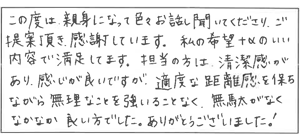 この度は、親身になって色々お話し聞いてくださり、ご
提案頂き、感謝しています。私の希望+αのいい
内容で満足してます。担当の方は、清潔感が
あり、感じが良いですが、適度な距離感を保ち
ながら無理なことを強いることなく、無駄がなく
なかなか良い方でした。ありがとうございました！